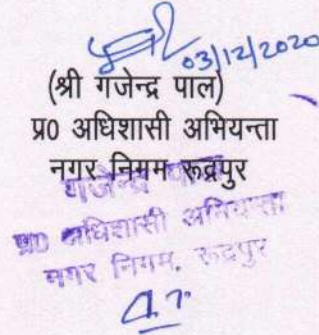 03/12/2020
(श्री गजेन्द्र पाल)
प्र0 अधिशासी अभियन्ता
नगर निगम रूद्रपुर
गजेन्द्र पाल
प्र0 अधिशासी अभियन्ता
नगर निगम, रूद्रपुर